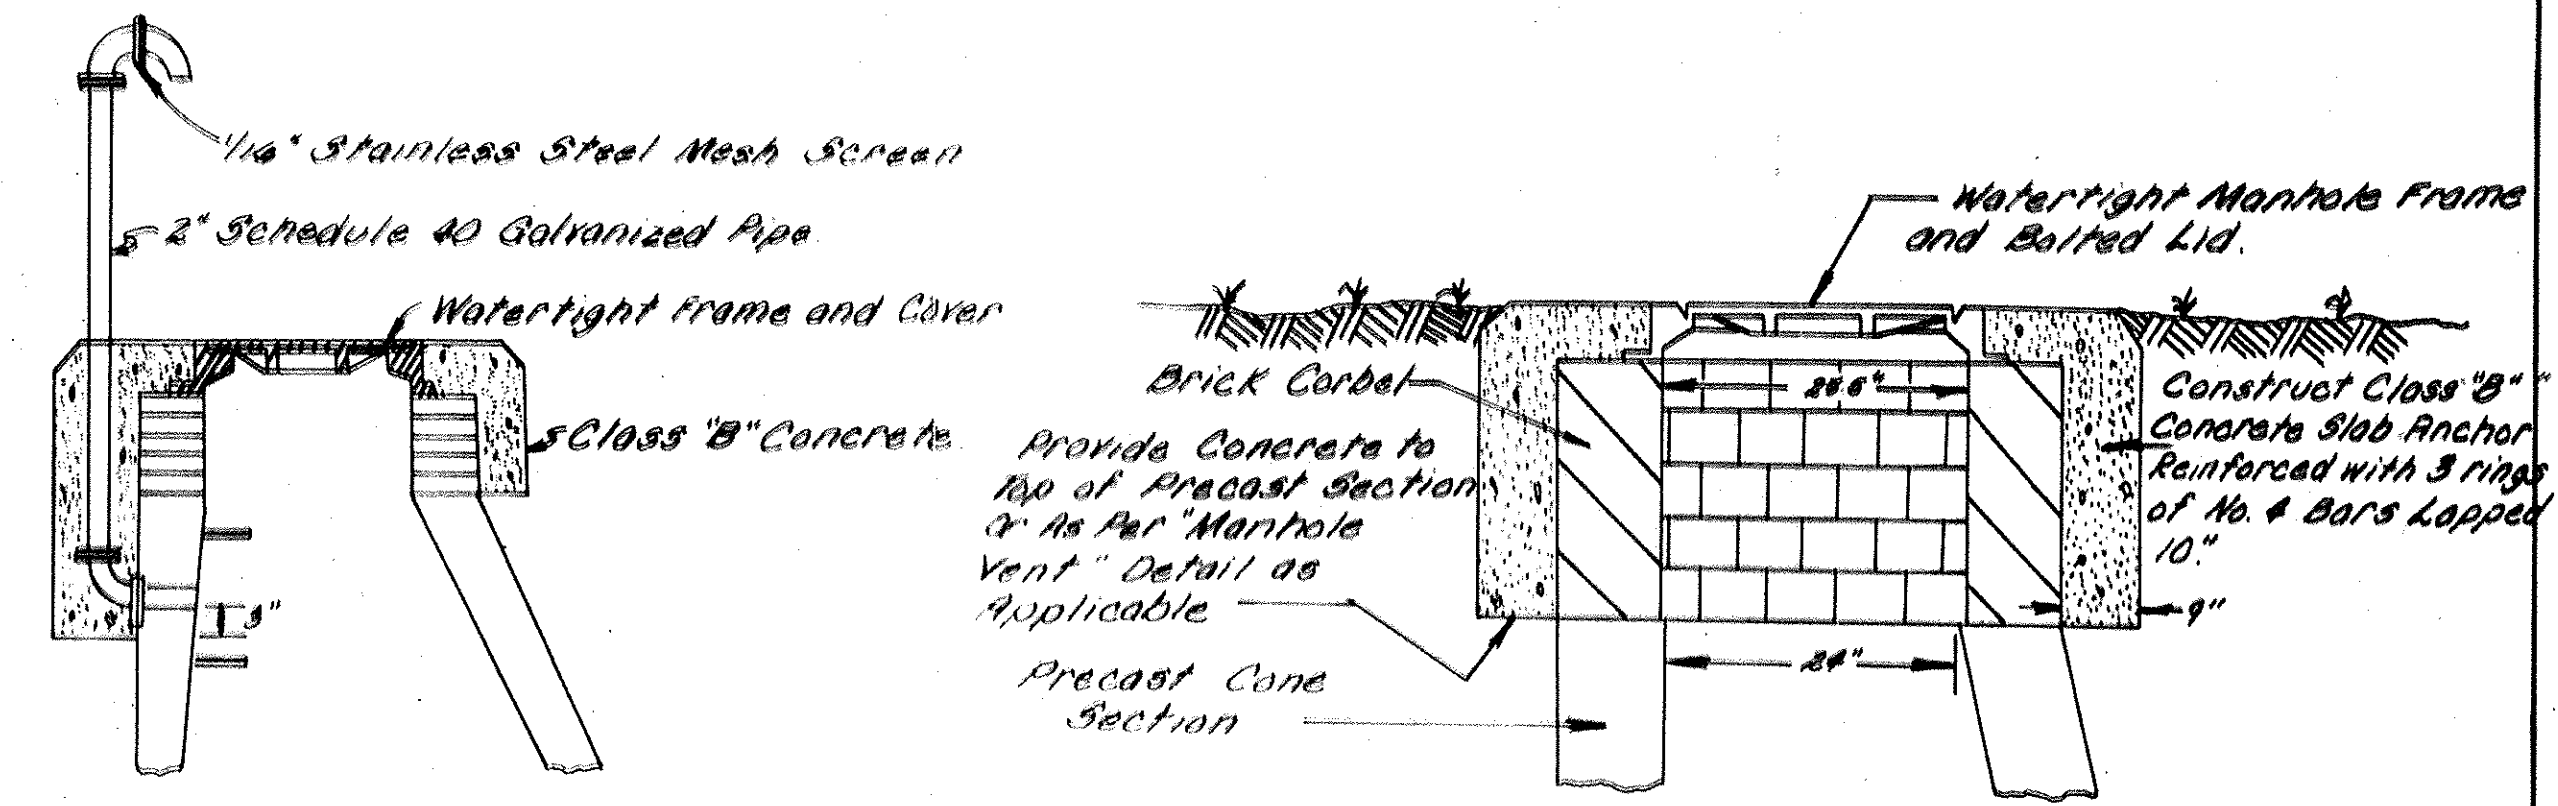 1/16" Stainless Steel Mesh Screen
2" Schedule 40 Galvanized Pipe
Watertight Frame and Cover
Class "B" Concrete
3"
Watertight Manhole Frame
and Bolted Lid.
Brick Corbel
Provide Concrete to
Top of Precast Section
Or As Per "Manhole
Vent" Detail as
Applicable
Precast Cone
Section
24"
Construct Class "B"
Concrete Slab Anchor
Reinforced with 3 rings
of No. 4 Bars Lapped
10."
9"